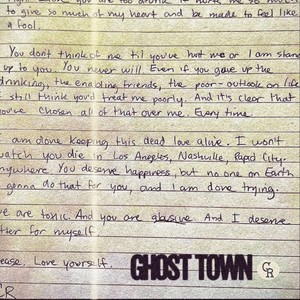 you are too drunk. It
to give so much of my heart and be made to feel like
a fool.
You don't think of me til you've hurt me or I am stand
up to you. You never will. Even if you gave up the
drinking, the enabling friends, the poor-outlook on life
I still think you'd treat me poorly. And it's clear that
you've chosen all of that over me. Every time.
I am done keeping this dead love alive. I won't
watch you die in Los Angeles, Nashville, Rapid City.
Anywhere. You deserve happiness, but no one on Earth
gonna do that for you, and I am done trying.
We are toxic. And you are abusive. And I deserve
for myself
Love yourself.
GHOST TOWN
CR
CR